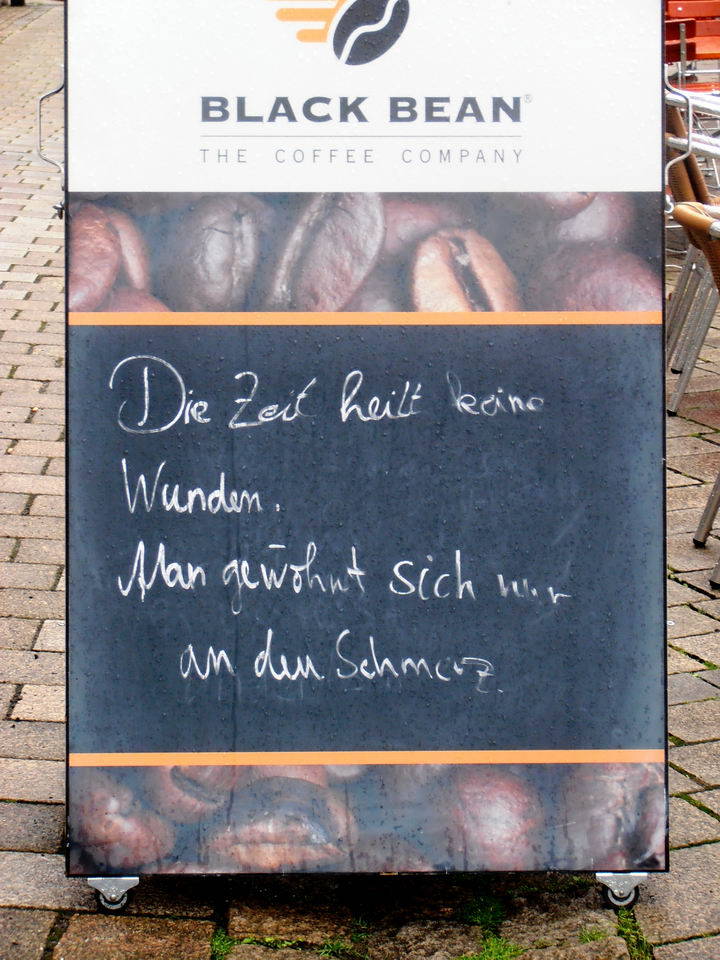 BLACK BEAN®
THE COFFEE COMPANY
Die Zeit heilt keine
Wunden.
Man gewöhnt sich nur
an den Schmerz.